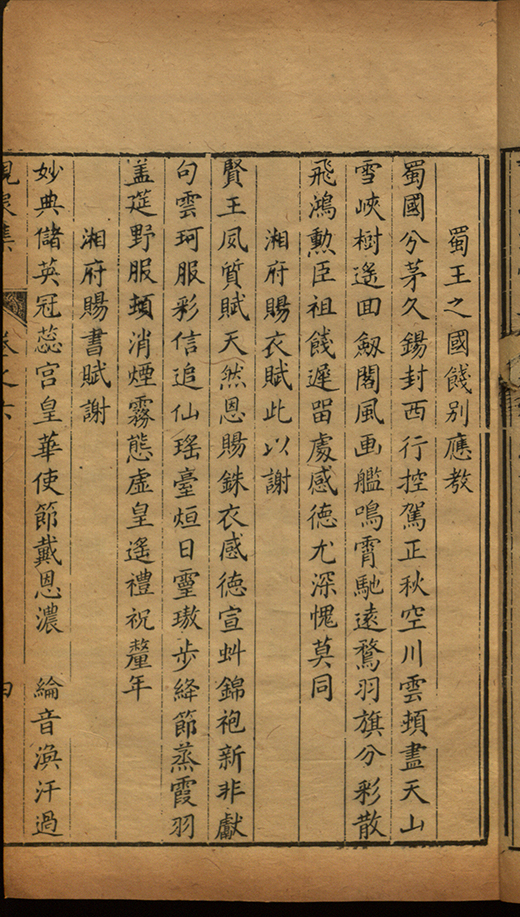 蜀王之國餞別應教
蜀國分茅久錫封西行控駕正秋空川雲頓盡天山
雪峽樹遙回劔閣風画艦鳴霄馳遠鶩羽旗分彩散
飛鴻勲臣祖餞遲留處感徳尤深愧莫同
湘府賜衣賦此以謝
賢王凤質賦天然恩賜銖衣感徳宣虯錦袍新非獻
句雲珂服彩信追仙瑤臺烜日靈璈步絳節蒸霞羽
盖筵野服頓消煙霧態虚皇遙禮祝釐年
湘府賜書賦謝
妙典儲英冠蕊宫皇華使節戴恩濃 綸音渙汗過
峴泉集 卷之六 四